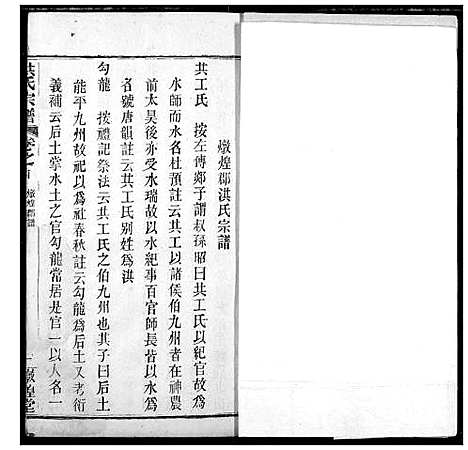 燉煌郡洪氏宗譜
共工氏 按左傳郯子謂叔孫昭曰共工氏以紀官故為
水師而水名杜預註云共工以諸侯伯九州者在神農
前太昊後亦受水瑞故以水紀事百官師長皆以水為
名號唐韻註云共工氏別姓為洪
勾龍 按禮記祭法云共工氏之伯九州也其子曰后土
能平九州故祀以為社春秋註云勾龍為后土又考衍
義補云后土掌水土之官勾龍常居是官一以人名一
洪氏宗譜 卷之首 燉煌郡譜 一 燉煌堂